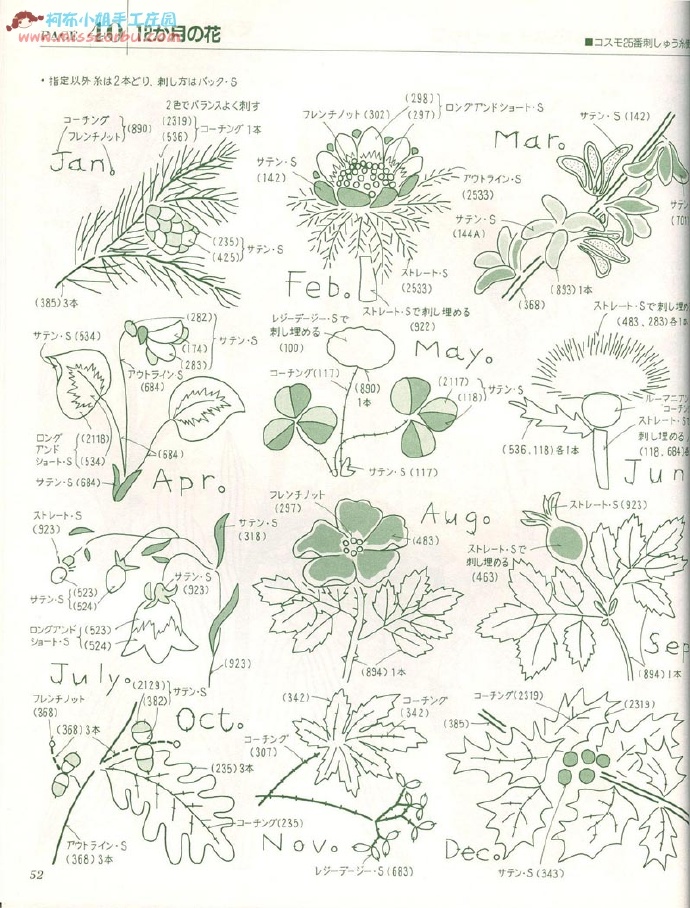 柯布小姐手工庄园
www.misscorbu.com
12か月の花
■コスモ25番刺しゅう糸
・指定以外糸は2本どり、刺し方はバック・S
2色でバランスよく刺す
コーチング
フレンチノット
(890)
(2319)
(536)
コーチング1本
Jan.
(235)
(425)
サテン・S
(385)3本
(298)
(297)
ロングアンドショート・S
フレンチノット(302)
サテン・S
(142)
アウトライン・S
(2533)
ストレート・S
(2533)
Feb.
ストレート・Sで刺し埋める
(922)
Mar.
サテン・S(142)
サテン・S
(144A)
サテン
(701
(368)
(893)1本
サテン・S(534)
(282)
(174)
(283)
サテン・S
アウトライン・S
(684)
ロング
アンド
ショート・S
(2118)
(534)
(684)
サテン・S(684)
Apr.
レジーデージー・Sで
刺し埋める
(100)
May.
コーチング(117)
(890)
1本
(2117)
(118)
サテン・S
サテン・S(117)
ストレート・Sで刺し埋め
(483,283)各1本
ルーマニアン
コーチ
ストレート・S
刺し埋める
(118,684)各
(536,118)各1本
Jun
ストレート・S
(923)
サテン・S
(318)
サテン・S
(923)
サテン・S
(523)
(524)
ロングアンド
ショート・S
(523)
(524)
(923)
July.
フレンチノット
(297)
Aug.
(483)
(894)1本
ストレート・S(923)
ストレート・Sで
刺し埋める
(463)
Sep
(894)1本
フレンチノット
(368)
(2129)
(382)
サテン・S
Oct.
(368)3本
(235)3本
アウトライン・S
(368)3本
(342)
コーチング
(342)
コーチング
(307)
コーチング(235)
Nov.
レジーデージー・S(683)
コーチング(2319)
(2319)
(385)
Dec.
サテン・S(343)
52